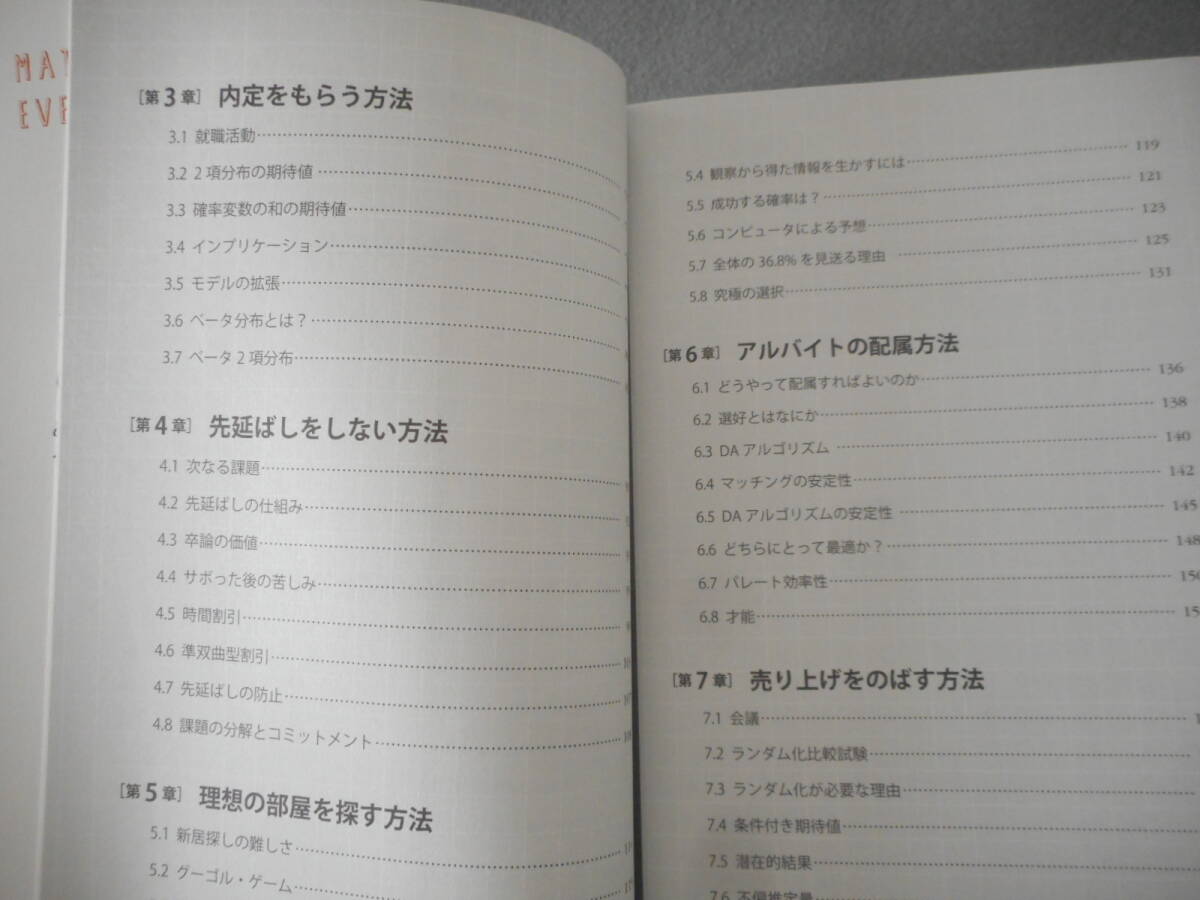 MAY
EVE
［第3章］ 内定をもらう方法
3.1 就職活動
3.2 2項分布の期待値
3.3 確率変数の和の期待値
3.4 インプリケーション
3.5 モデルの拡張
3.6 ベータ分布とは？
3.7 ベータ2項分布
［第4章］ 先延ばしをしない方法
4.1 次なる課題
4.2 先延ばしの仕組み
4.3 卒論の価値
4.4 サボった後の苦しみ
4.5 時間割引
4.6 準双曲型割引
4.7 先延ばしの防止 107
4.8 課題の分解とコミットメント 108
［第5章］ 理想の部屋を探す方法
5.1 新居探しの難しさ
5.2 グーゴル・ゲーム
5.4 観察から得た情報を生かすには 119
5.5 成功する確率は？ 121
5.6 コンピュータによる予想 123
5.7 全体の36.8%を見送る理由 125
5.8 究極の選択 131
［第6章］ アルバイトの配属方法
6.1 どうやって配属すればよいのか 136
6.2 選好とはなにか 138
6.3 DAアルゴリズム 140
6.4 マッチングの安定性 142
6.5 DAアルゴリズムの安定性 145
6.6 どちらにとって最適か？ 148
6.7 パレート効率性 150
6.8 才能 15
［第7章］ 売り上げをのばす方法
7.1 会議 1
7.2 ランダム化比較試験
7.3 ランダム化が必要な理由
7.4 条件付き期待値
7.5 潜在的結果
7.6 不偏推定量